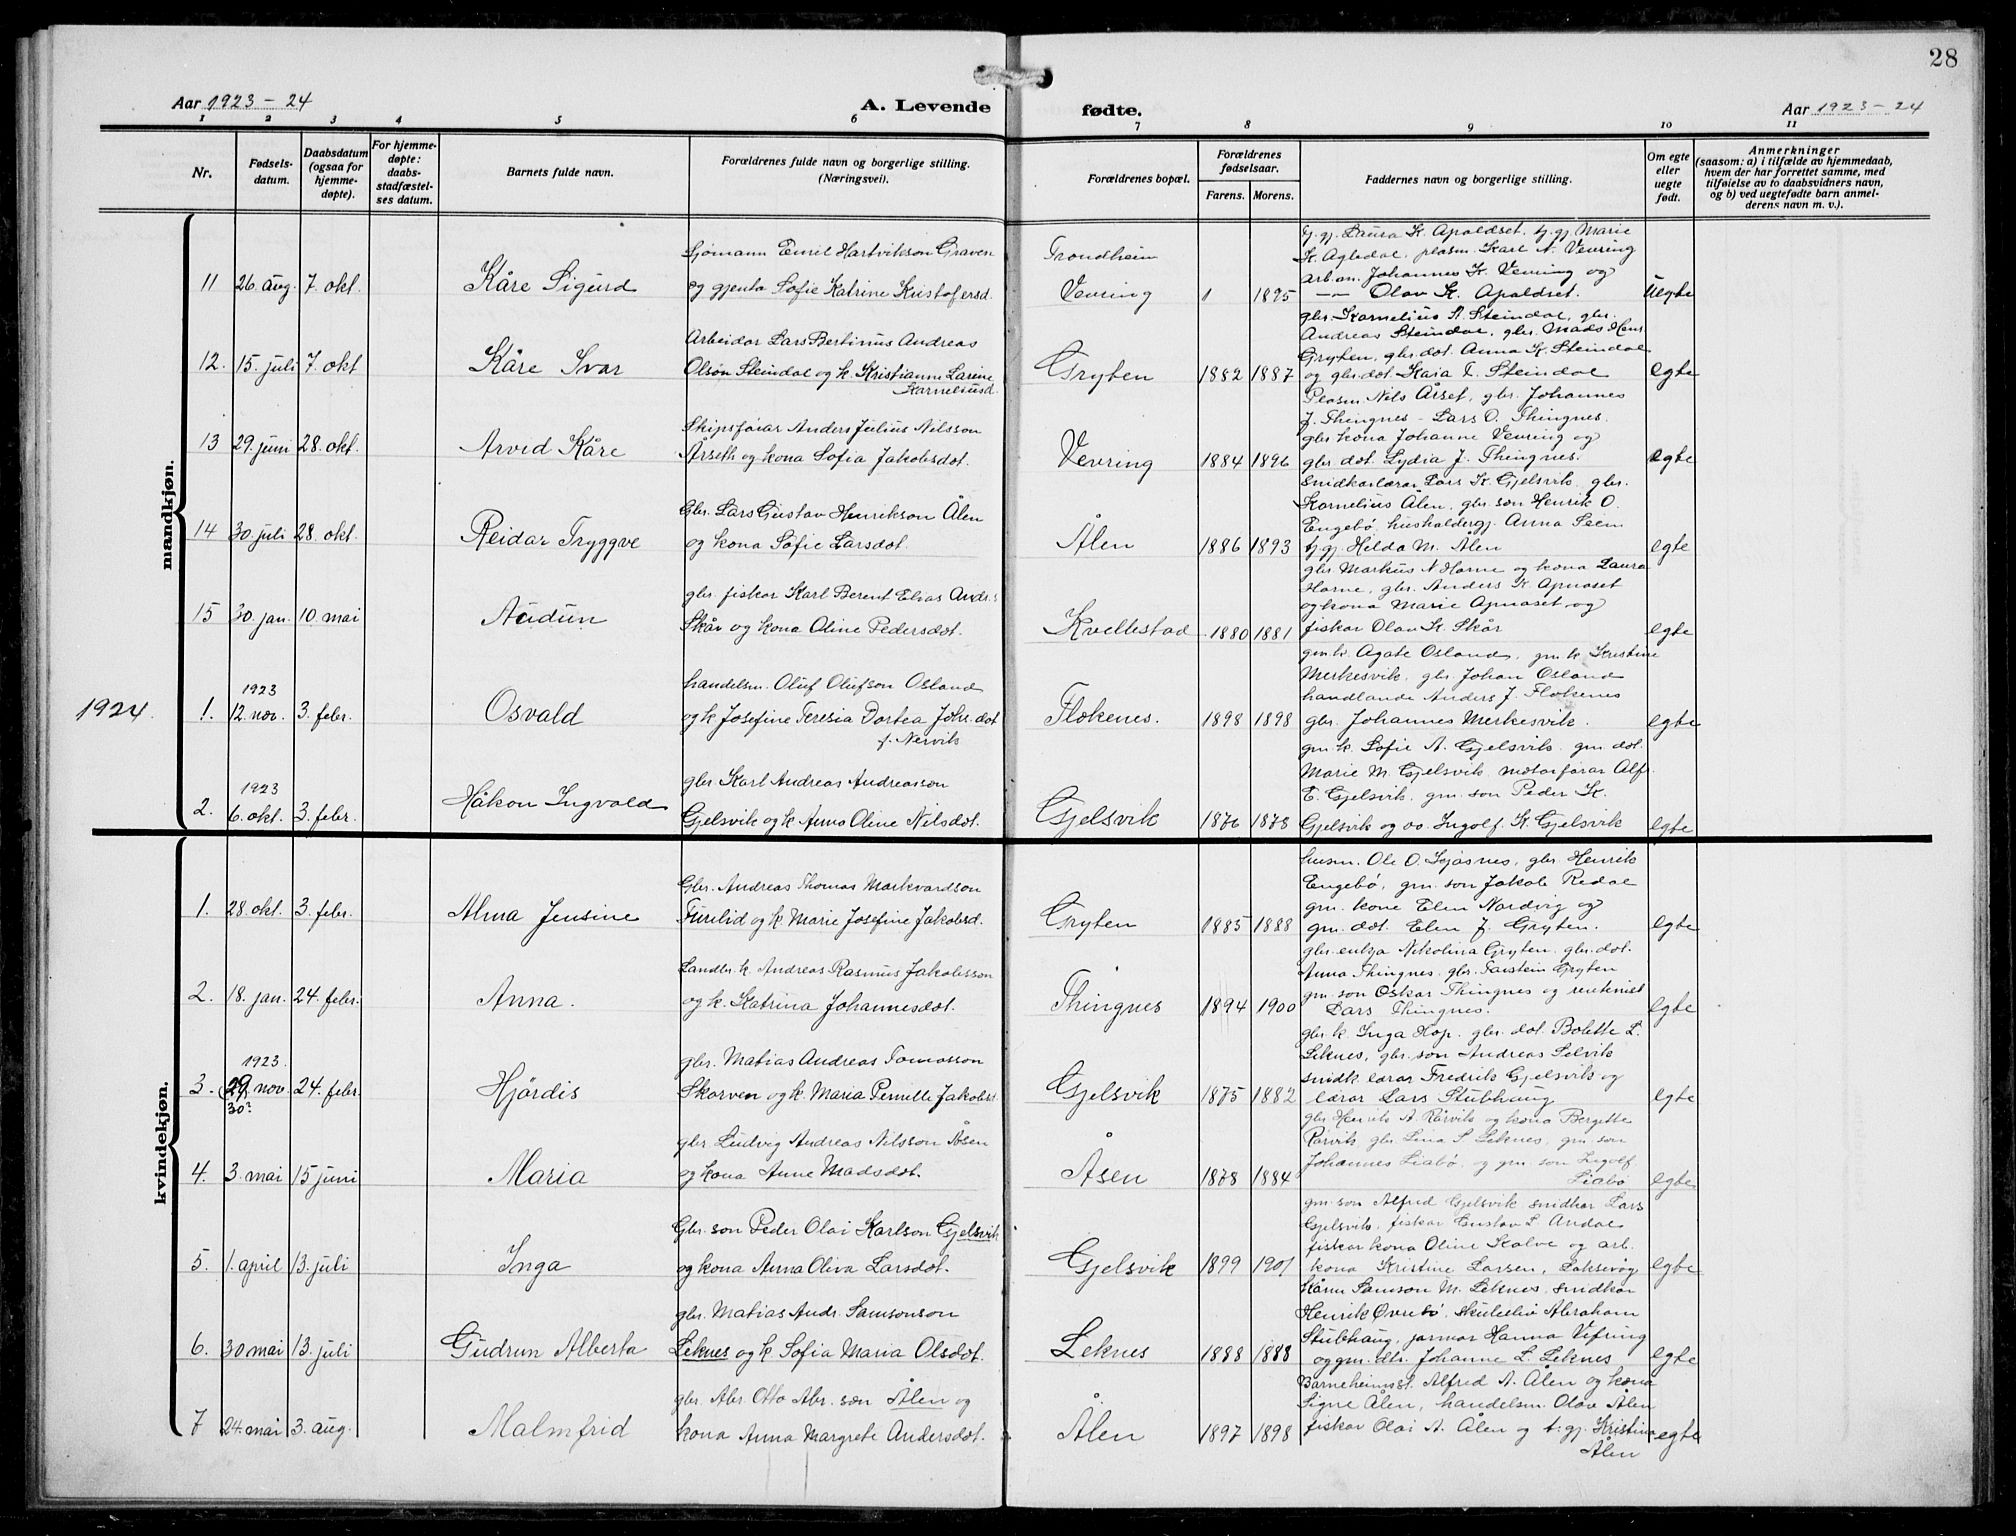 28
Aar 1923-24
A. Levende fødte.
Aar 1923-24
1 2 3 4 5 6 7 8 9 10 11
Nr.
Fødsels-
datum.
Daabsdatum
(ogsaa for
hjemme-
døpte).
For hjemme-
døpte:
daabs-
stadfæstel-
ses datum.
Barnets fulde navn.
Forældrenes fulde navn og borgerlige stilling.
(Næringsvei).
Forældrenes bopæl.
Forældrenes
fødselsaar.
Farens. Morens.
Faddernes navn og borgerlige stilling.
Om egte
eller
uegte
født.
Anmerkninger
(saasom: a) i tilfælde av hjemmedaab,
hvem der har forrettet samme, med
tilføielse av to daabsvidners navn,
og b) ved uegtefødte barn anmel-
derens navn m. v.).
mandkjøn.
11 26. aug. 7. okt. Kåre Sigurd
Sjømann Emil Hartvikson Graven
og gjenta Sofie Katrine Kristofersd.
Trondheim
Vevring 1895
t.gj. Laura K. Apaldset, t.gj. Marie
K. Agledal, plasm. Karl A. Vevring
arb.an. Johannes K. Vevring og
-- Olav K. Apaldset.
Uegte
12. 15. juli 7. okt Kåre Ivar
Arbeidar Lars Bertinus Andreas
Olson Steindal og k. Kristianne Larine
Karneliusd.
Gryten 1882 1887
gbr. Kornelius A. Steindal, gbr.
Andreas Steindal, gbr. Mads Henr.
Gryten, gbr. dot. Anna K. Steindal
og gbr. dot. Kaia T. Steindal
egte
13 29. juni 28. okt. Arvid Kåre
Skipsførar Anders Julius Nilsson
Årseth og kona Sofia Jakobsdot.
Vevring 1884 1896
Plasm. Nils Årset, gbr. Johannes
J. Thingnes - Lars O. Thingnes.
gbr. kona Johanne Vevring og
gbr. dot. Lydia J. Thingnes.
egte
14 30. juli 28. okt. Reidar Tryggve
Gbr. Lars Gustav Henrikson Ålen
og kona Sofie Larsdot.
Ålen 1886 1893
Snidkarlærar Lars K. Gjelsvik, gbr.
Kornelius Ålen, gbr. son Henrik O.
Engebø, husholdergj. Anna Seem
t.gj. Hilda M. Ålen
egte
15 30. jan. 10. mai Audun
gbr. fiskar Karl Berent Elias Andr.s
Skår og kona Oline Pedersdot.
Kvellestad 1880 1881
gbr. Markus N Horne og kona Laura
Horne, gbr. Anders K. Apnaset
og kona Marie Apnaset og
fiskar Olav K. Skår
egte
1924.
1. 1923
12. nov. 3. febr. Osvald
handelsm. Oluf Olufson Osland
og k Josefine Teresia Dortea Joh.s dot
f. Nervik
Flokenes. 1898 1898
gm. k. Agate Osland, gm. k Kristine
Merkesvik, gbr. Johan Osland
handlande Anders J. Flokenes
gbr. Johannes Merkesvik.
egte
2. 1923
6. okt. 3. febr. Håkon Ingvald
gbr. Karl Andreas Andreasson
Gjelsvik og k. Anna Oline Nilsdot.
Gjelsvik 1876 1878
gm. k. Sofie A. Gjelsvik, gm. dot.
Marie M. Gjelsvik, motorførar Alf.
E. Gjelsvik, gm. son Peder K.
Gjelsvik og do. Ingolf K. Gjelsvik
egte
kvindekjøn.
1. 28. okt. 3. febr. Alma Jensine
Gbr. Andreas Thomas Markvardson
Furelid og k. Marie Josefine Jakobsd.
Gryten 1885 1888
husm. Ole O. Igjåsnes, gbr. Henrik
Engebø, gm. son Jakob Redal
gm. kone Elen Nordvig og
gm. dot. Elen J. Gryten.
egte
2. 18. jan. 24. febr. Anna.
Landbr. k. Andreas Rasmus Jakobsson
og k. Katrina Johannesdot.
Thingnes 1894 1900
gbr. enkja Nikolina Gryten, gbr. dot.
Anna Thingnes, gbr. Torstein Gryten
gm. son Oskar Thingnes og rentenist
Lars Thingnes.
egte
3. 1923.
29. nov. 24. febr. Hjördis
30?
gbr. Matias Andreas Tomasson
Skorven og k. Maria Pernille Jakobsd.
Gjelsvik 1875 1882
gbr. k. Inga Hop, gbr. dot. Bolette L.
Leknes, gbr. son Andreas Solvik
snidk. lærar Fredrik Gjelsvik og
lærar Lars Stubhaug
egte
4. 3. mai 15. juni Maria
gbr. Ludvig Andreas Nilsson Åsen
og kona Anne Madsdot.
Åsen 1878 1884
gbr. Henrik A. Rårvik og kona Bergitte
Rårvik gbr. Lina S. Leknes, gm. son
Johannes Liabø, og gm. son Ingolf
Liabø
egte
5. 1. april 13. juli Inga
Gbr. son Peder Olai Karlson Gjelsvik
og kona Anna Oliva Larsdot.
Gjelsvik 1899 1901
gm. son Alfred Gjelsvik snidkar Lars
Gjelsvik, fiskar Gustav L. Andal
fiskar kona Oline Kalve og arb.
kona Kristine Larsen, Laksevåg
egte
6. 30 mai 13. juli Gudrun Alberta
gbr. Matias Andr. Samsonson
Leknes og k. Sofia Maria Olsdot.
Leknes 1888 1888
Kårm. Samson M. Leknes, snidkar
Henrik Øvrebø, skulebø Abraham
Stubhaug, jormor Hanna Vefring
og gm. dtr. Johanne L. Leknes
egte
7 24. mai 3. aug. Malmfrid
gbr. Abr. Otto Abr. son Ålen og
kona Anna Margrete Andersdot.
Ålen 1897 1898
Barneheimsst. Alfred A. Ålen og kona
Signe Ålen, handelsm. Olav Ålen
fiskar Olai A. Ålen og t.gj. Kristina
Ålen
egte